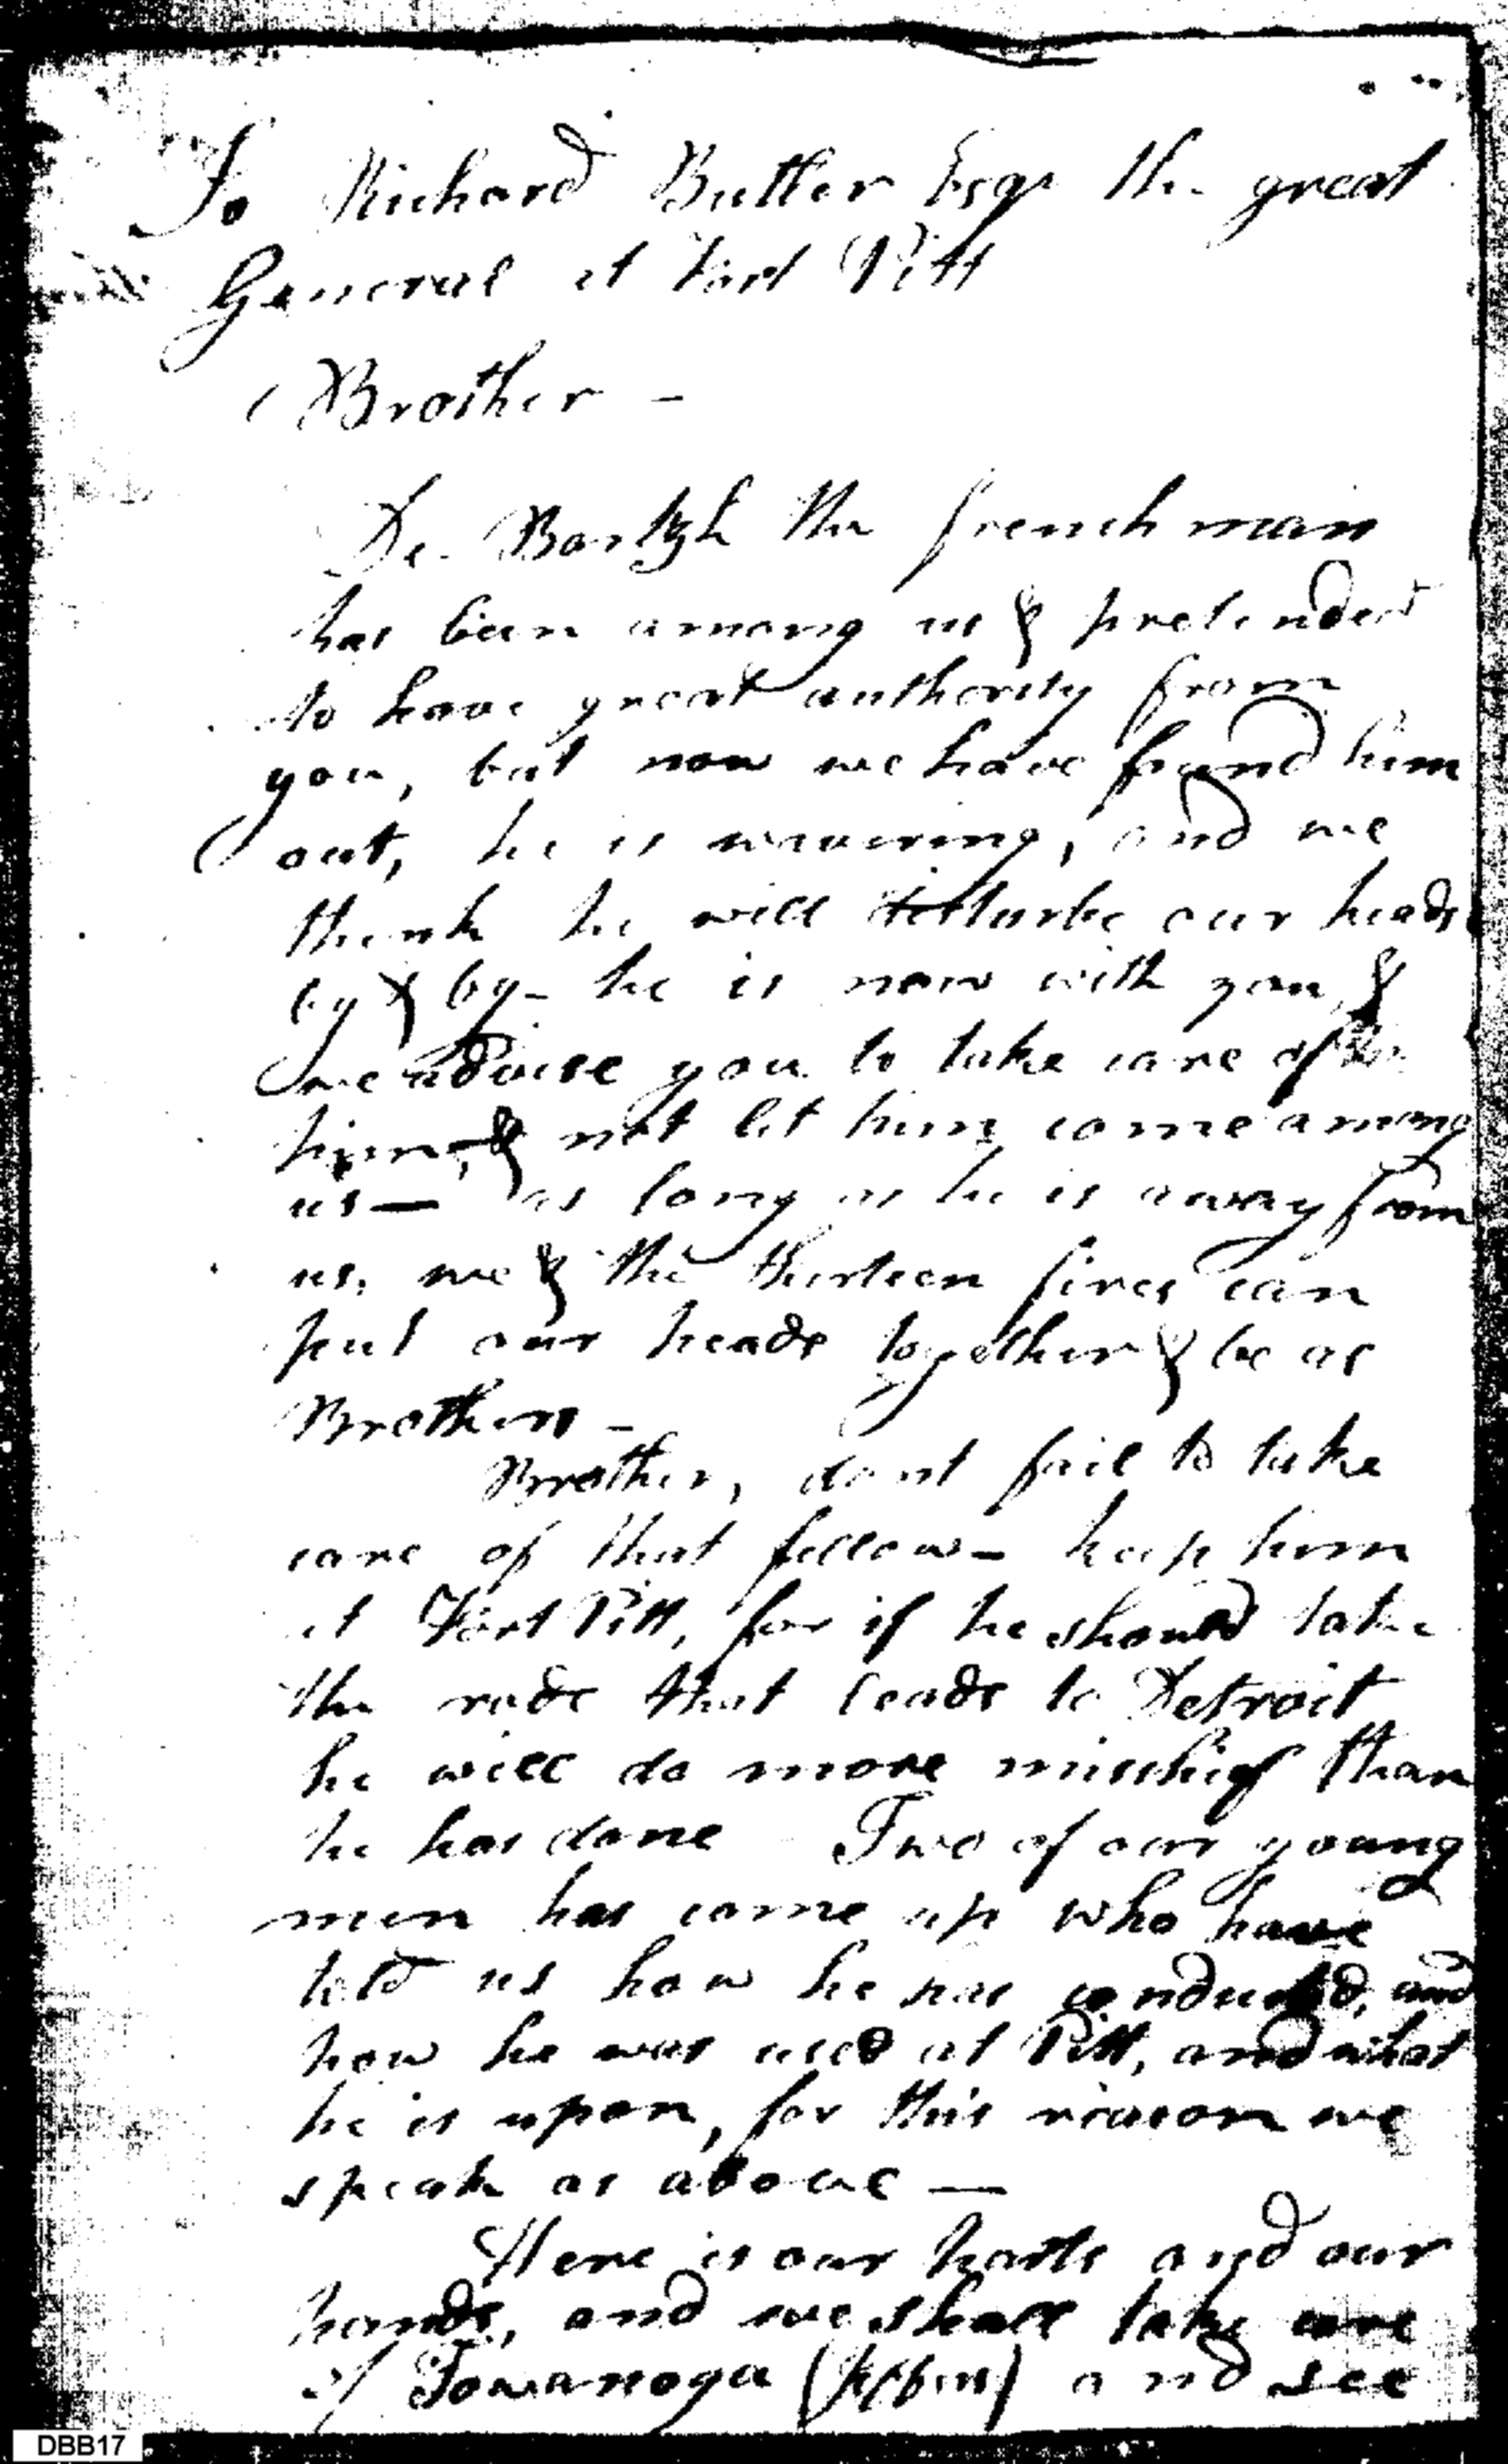 To Richard Butler Esqr the great
General at Fort Pitt
Brother -
De the frenchman
has been among us & pretended
to have great authority from
you, but now we have found him
out, he is wavering, and we
think he will disturbe our heads
by & by - he is now with you, &
we advise you to take care of
him, & not let him come among
us — as long as he is away from
us, we & the thirteen fires can
put our heads together & be as
Brothers -
Brother, dont fail to take
care of that fellow - keep him
at Fort Pitt, for if he should take
the rode that leads to Detroit
he will do more mischief than
he has done Two of our young
men has come up who have
told us how he has conducted, and
how he was used at Pitt, and what
he is upon, for this reason we
speak as above —
Here is our harts and our
hands, and we shall take care
of Towanoga and see
DBB17